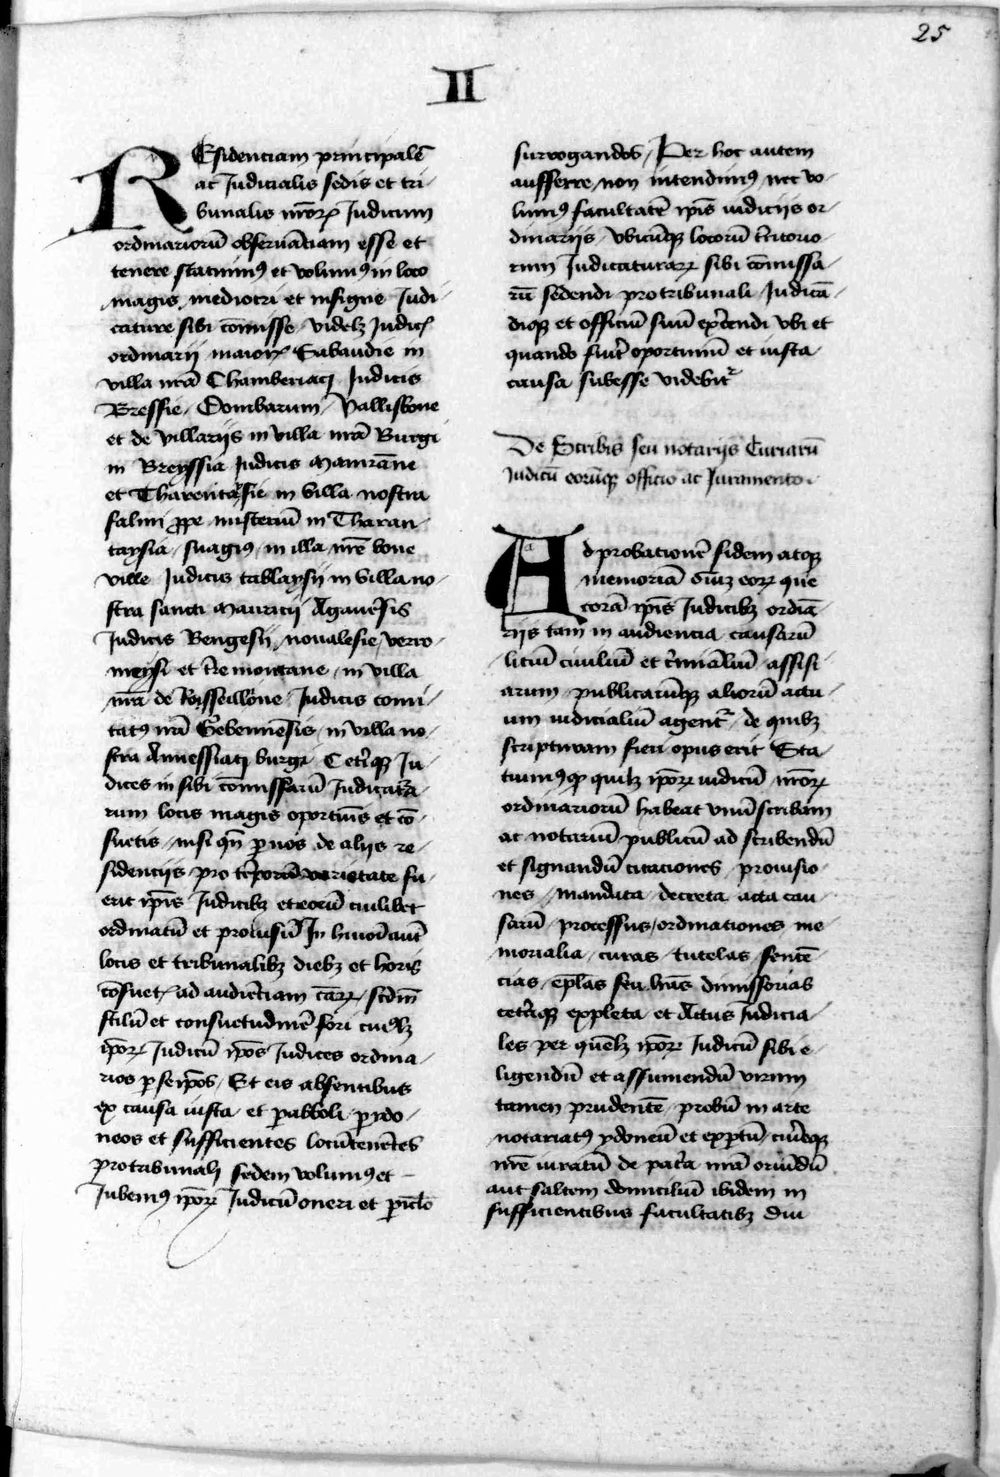 25
II
REsidenciam principalē
ac Judicialis sedis et tri-
bunalis nr̄orꝝ Judicum
ordinariorū observāciam esse et
tenere statuimꝰ et volumꝰ in loco
magis mediocri et insigne Judi-
cature sibi cōmisse videlꝫ Judicis
ordinarii maioris Sabaudie in
villa nr̄a Chamberiaci Judicis
Bressie, Dombarum, Vallisbone
et de villariis in villa nr̄a Burgi
in Breyssia Judicis Maurian̄e
et Tharentasie in villa nostra
salini ꝓpe misteriū in Tharan-
taysia, in villa nr̄e bone
ville Judicis cablaysii in villa no-
stra sancti Mauricii Aganēsis
Judicis Beugesii, novalesie, verro-
meysi et tr̄e montane, in villa
nr̄a de Rosseillione Judicis comi-
tatꝰ nr̄i Gebennēsis, in villa no-
stra Annessiaci burgi Ceteriqꝫ Ju-
dices in sibi cōmissarū Judicatura-
rum locis magis oportunis et cō-
suetis, nisi qn̄ ꝑ nos de aliis re-
sidenciis pro tēporū varietate fu-
erit ip̄is Judicibꝫ et eorū cuilibet
ordinatū et provisū In hmōi aut̄
locis et tribunalibꝫ diebꝫ et horis
cōsuetis ad audiēciam cārꝝ, scdm̄
stilū et consuetudinē fori cuiꝰlꝫ
ip̄orꝝ Judicū ip̄os Judices ordina-
rios ꝑ seip̄os, Et eis absentibus
ex causa iusta et ꝑabboli ꝑ ydo-
neos et sufficientes locūtenētes
protribunali sedem volumꝰ et
Jubemꝰ ip̄orꝝ Judicū oneri et ꝑiclo
surrogandos, Per hoc autem
aufferre non intendimꝰ nec vo-
lumꝰ facultatē ip̄is iudiciis or-
dinariis, vbicūqꝫ locorū tr̄itorio-
rum Judicaturarꝝ sibi cōmissa-
rū sedendi protribunali, Judicā-
diqꝫ et officiū suū exc̄endi vbi et
quando fuit̄ oportunū et iusta
causa subesse videbitᷣ
De Scribis seu notariis Curiarū
Judicū eorūqꝫ officio ac Juramento.
Ad probationē fidem atqꝫ
memoriā oīuꝫ eorꝝ que
corā ip̄is Judicibꝫ ordīa-
riis tam in audiencia causarū
litiū civiliū et cr̄imīaliū, assisi-
arum, publicarūqꝫ aliorū actu-
um iudicialiū agentᷣ, de quibꝫ
scripturam fieri opus erit Sta-
tuimꝰ qꝫ quilꝫ ip̄orꝝ iudicū nr̄orꝝ
ordinariorū habeat vnū scribam
ac notariū publicū ad scribendū
et signandū citaciones, provisio-
nes, mandata, decreta acta cau-
sarū, processus, ordinationes me-
morialia, curas, tutelas, sentē-
cias, ep̄las seu lr̄as dimissorias
ceteraqꝫ expleta, et Actus Judicia-
les per quēlꝫ ip̄orꝝ Judicū sibi e-
ligendū et assumendū virum
tamen prudentē, probū in arte
notariatꝰ ydoneū et exp̄tū, curieqꝫ
nr̄e iuratū de patria nr̄a oriūdū
aut saltem domiciliū ibidem in
sufficientibus facultatibꝫ Diu